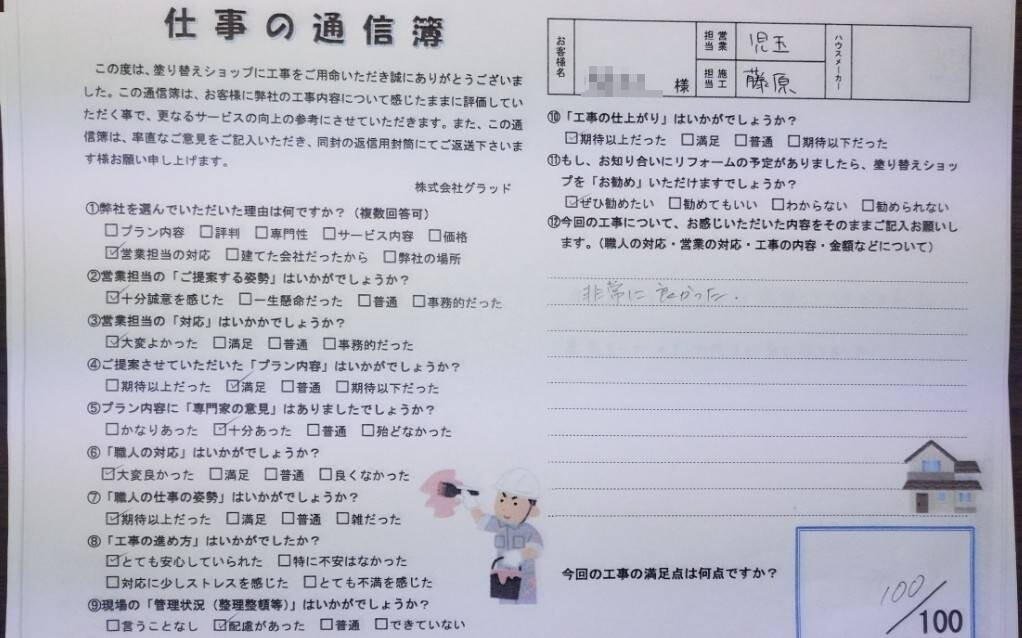 仕事の通信簿
この度は、塗り替えショップに工事をご用命いただき誠にありがとうございま
した。この通信簿は、お客様に弊社の工事内容について感じたままに評価していた
だく事で、更なるサービスの向上の参考にさせていただきます。また、この通
信簿は、率直なご意見をご記入いただき、同封の返信用封筒にてご返送下さいま
す様お願い申し上げます。
株式会社グラッド
①弊社を選んでいただいた理由は何ですか？（複数回答可）
□プラン内容 □評判 □専門性 □サービス内容 □価格
☑営業担当の対応 □建てた会社だったから □弊社の場所
②営業担当の「ご提案する姿勢」はいかがでしょうか？
☑十分誠意を感じた □一生懸命だった □普通 □事務的だった
③営業担当の「対応」はいかかでしょうか？
☑大変よかった □満足 □普通 □事務的だった
④ご提案させていただいた「プラン内容」はいかがでしょうか？
□期待以上だった ☑満足 □普通 □期待以下だった
⑤プラン内容に「専門家の意見」はありましたでしょうか？
□かなりあった ☑十分あった □普通 □殆どなかった
⑥「職人の対応」はいかがでしょうか？
☑大変良かった □満足 □普通 □良くなかった
⑦「職人の仕事の姿勢」はいかがでしょうか？
☑期待以上だった □満足 □普通 □雑だった
⑧「工事の進め方」はいかがでしたか？
☑とても安心していられた □特に不安はなかった
□対応に少しストレスを感じた □とても不満を感じた
⑨現場の「管理状況（整理整頓等）」はいかがでしょうか？
□言うことなし ☑配慮があった □普通 □できていない
お客様名
様
営業担当
児玉
施工担当
藤原
ハウスメーカー
⑩「工事の仕上がり」はいかがでしょうか？
☑期待以上だった □満足 □普通 □期待以下だった
⑪もし、お知り合いにリフォームの予定がありましたら、塗り替えショッ
プを「お勧め」いただけますでしょうか？
☑ぜひ勧めたい □勧めてもいい □わからない □勧められない
⑫今回の工事について、お感じいただいた内容をそのままご記入お願いし
ます。（職人の対応・営業の対応・工事の内容・金額などについて）
非常に良かった．
今回の工事の満足点は何点ですか？
100/100